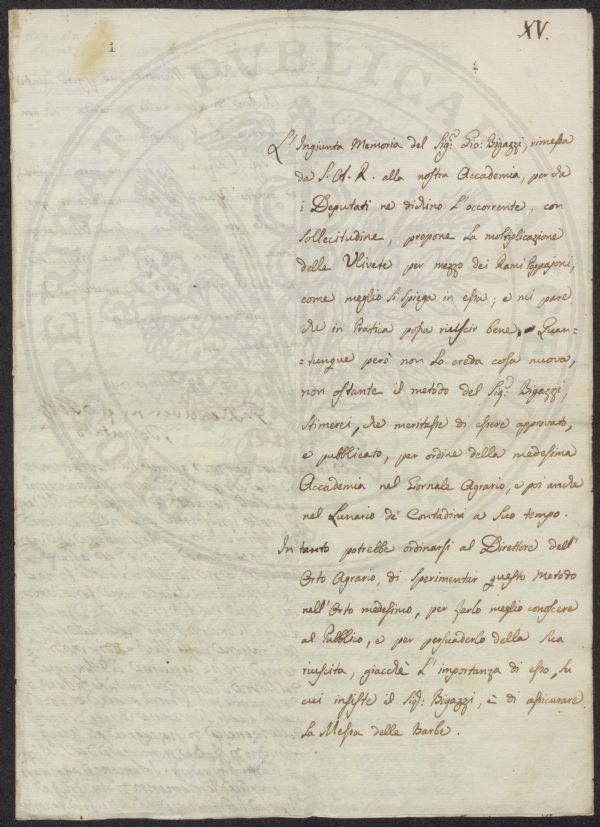 XV.
1
L'Ingiunta Memoria del Sigr. Gio: Bigazzi, rimessa
da S. A. R. alla nostra Accademia, perche
i Deputati ne dichino l'occorrente, con
sollecitudine, propone la moltiplicazione
delle Ulivete per mezzo dei Rami Pappajoni,
come meglio si spiega in essa; e mi pare
che in Pratica possa riuscir bene. Quan-
=tunque però non la creda cosa nuova,
non ostante il metodo del Sigr. Bigazzi,
stimerei, che meritasse di essere approvato,
e pubblicato, per ordine della medesima
Accademia nel Giornale Agrario, e poi anche
nel Lunario de' Contadini a suo tempo.
In tanto potrebbe ordinarsi al Direttore dell'
Orto Agrario, di sperimentar questo Metodo
nell'Orto medesimo, per farlo meglio conoscere
al Pubblico, e per persuaderlo della sua
riuscita, giacchè l'importanza di esso, su
cui insiste il Sigr: Bigazzi, è di assicurare
la Messa delle Barbe.